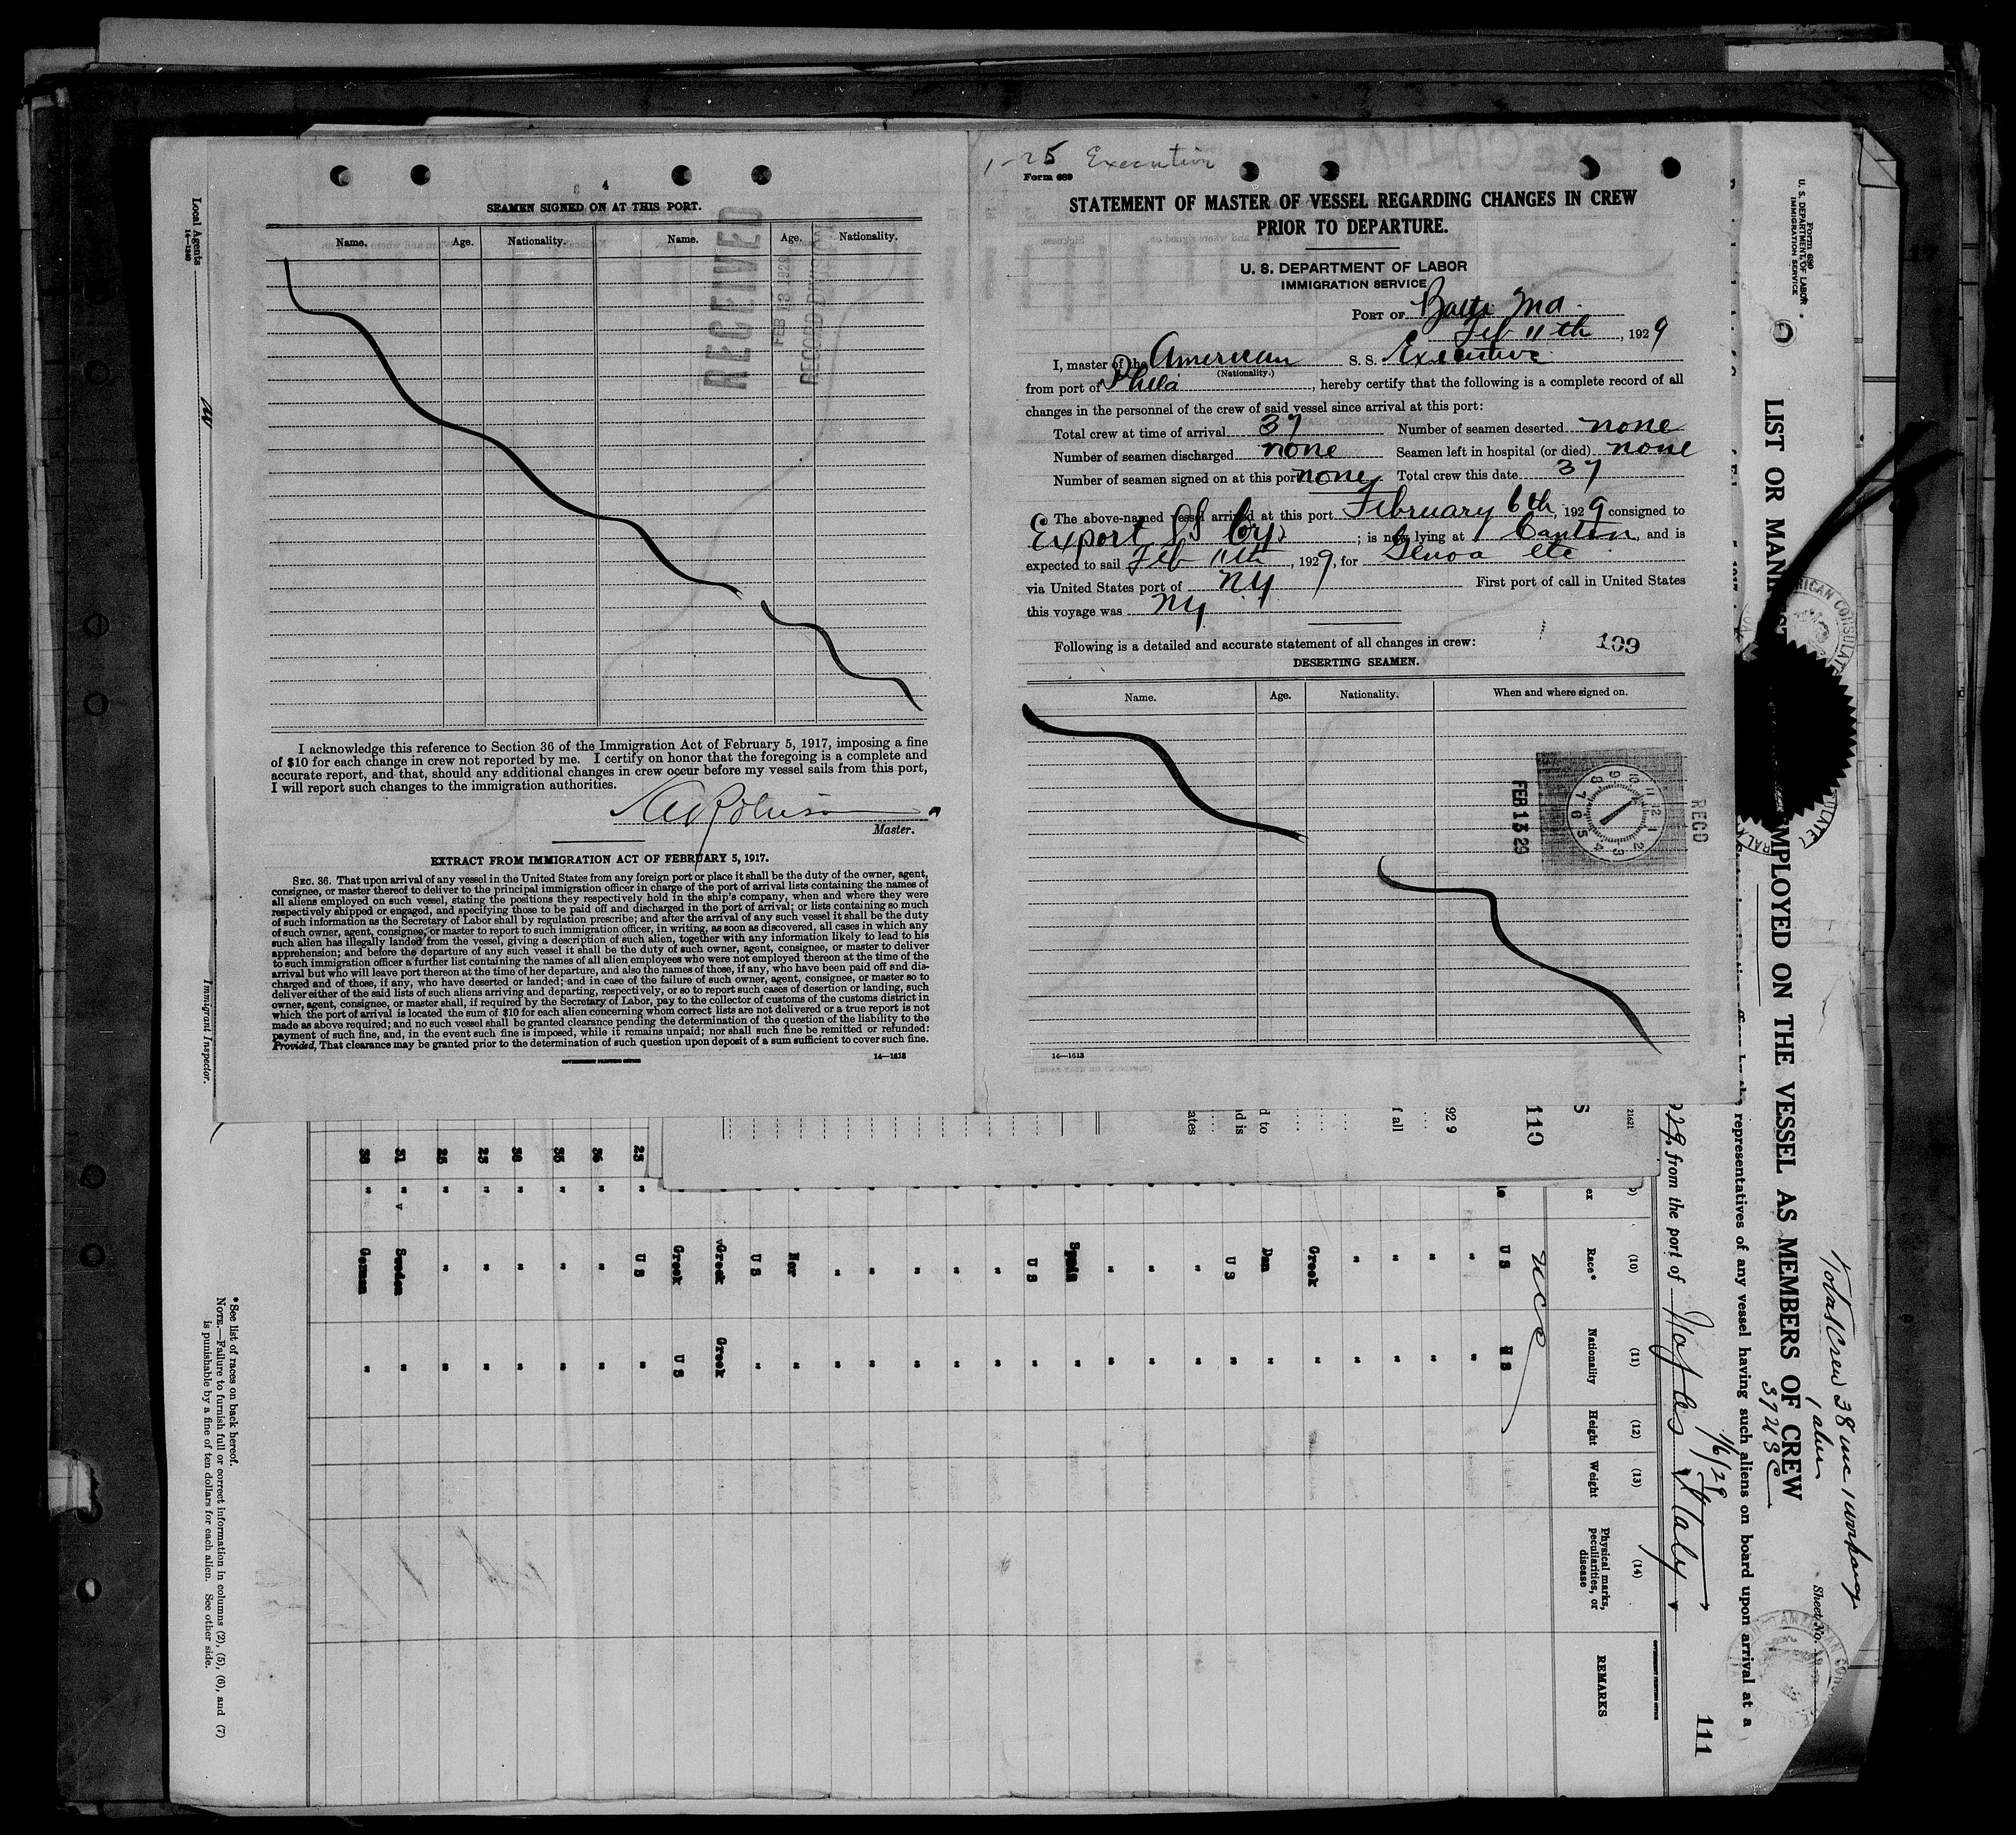 4
SEAMEN SIGNED ON AT THIS PORT.
Name. Age. Nationality. Name. Age. Nationality.
RECEIVED
FEB 13 1929
RECORD DIVISION
I acknowledge this reference to Section 36 of the Immigration Act of February 5, 1917, imposing a fine
of $10 for each change in crew not reported by me. I certify on honor that the foregoing is a complete and
accurate report, and that, should any additional changes in crew occur before my vessel sails from this port,
I will report such changes to the immigration authorities.
Master.
EXTRACT FROM IMMIGRATION ACT OF FEBRUARY 5, 1917.
SEC. 36. That upon arrival of any vessel in the United States from any foreign port or place it shall be the duty of the owner, agent,
consignee, or master thereof to deliver to the principal immigration officer in charge of the port of arrival lists containing the names of
all aliens employed on such vessel, stating the positions they respectively hold in the ship's company, when and where they were
respectively shipped or engaged, and specifying those to be paid off and discharged in the port of arrival; or lists containing so much
of such information as the Secretary of Labor shall by regulation prescribe; and after the arrival of any such vessel it shall be the duty
of such owner, agent, consignee, or master to report to such immigration officer, in writing, as soon as discovered, all cases in which any
such alien has illegally landed from the vessel, giving a description of such alien, together with any information likely to lead to his
apprehension; and before the departure of any such vessel it shall be the duty of such owner, agent, consignee, or master to deliver
to such immigration officer a further list containing the names of all alien employees who were not employed thereon at the time of the
arrival but who will leave port thereon at the time of her departure, and also the names of those, if any, who have been paid off and dis-
charged and of those, if any, who have deserted or landed; and in case of the failure of such owner, agent, consignee, or master so to
deliver either of the said lists of such aliens arriving and departing, respectively, or so to report such cases of desertion or landing, such
owner, agent, consignee, or master shall, if required by the Secretary of Labor, pay to the collector of customs of the customs district in
which the port of arrival is located the sum of $10 for each alien concerning whom correct lists are not delivered or a true report is not
made as above required; and no such vessel shall be granted clearance pending the determination of the question of the liability to the
payment of such fine, and, in the event such fine is imposed, while it remains unpaid; nor shall such fine be remitted or refunded:
Provided, That clearance may be granted prior to the determination of such question upon deposit of a sum sufficient to cover such fine.
GOVERNMENT PRINTING OFFICE 14—1613
1-25 Executive
Form 689
STATEMENT OF MASTER OF VESSEL REGARDING CHANGES IN CREW
PRIOR TO DEPARTURE.
U. S. DEPARTMENT OF LABOR
IMMIGRATION SERVICE
PORT OF Balto Md.
Feb 11th, 1929
I, master of the American S. S. Executive
(Nationality.)
from port of Phila, hereby certify that the following is a complete record of all
changes in the personnel of the crew of said vessel since arrival at this port:
Total crew at time of arrival 37 Number of seamen deserted none
Number of seamen discharged none Seamen left in hospital (or died) none
Number of seamen signed on at this port none Total crew this date 37
The above-named vessel arrived at this port February 6th, 1929 consigned to
Export SS Corp; is now lying at Canton, and is
expected to sail Feb 11th, 1929, for Genoa etc
via United States port of NY First port of call in United States
this voyage was NY
Following is a detailed and accurate statement of all changes in crew:
109
DESERTING SEAMEN.
Name. Age. Nationality. When and where signed on.
FEB 13 29
RECD
14—1613
Local Agents
14—1240
Immigrant Inspector.
Form 680
U. S. DEPARTMENT OF LABOR
IMMIGRATION SERVICE
EMPLOYED ON THE VESSEL AS MEMBERS OF CREW
LIST OR
representatives of any vessel having such aliens on board upon arrival at a
from the port of Naples Italy
Total Crew 38
1 alien
37 USC
1/6/29
Sheet No.
111
110
21621
(10) (11) (12) (13) (14)
Race* Nationality Height Weight Physical marks, peculiarities, or disease REMARKS
USC
U S U S
"
"
"
"
Greek "
Dan "
U S "
"
"
"
Spain "
U S "
"
"
"
"
"
Nor "
U S "
Greek Greek
Greek U S
25 " U S "
36 " " "
35 " " "
38 " " "
23 " " "
25 " " "
31 " Sweden "
38 " German "
*See list of races on back hereof.
NOTE.—Failure to furnish full or correct information in columns (2), (5), (6), and (7)
is punishable by a fine of ten dollars for each alien. See other side.